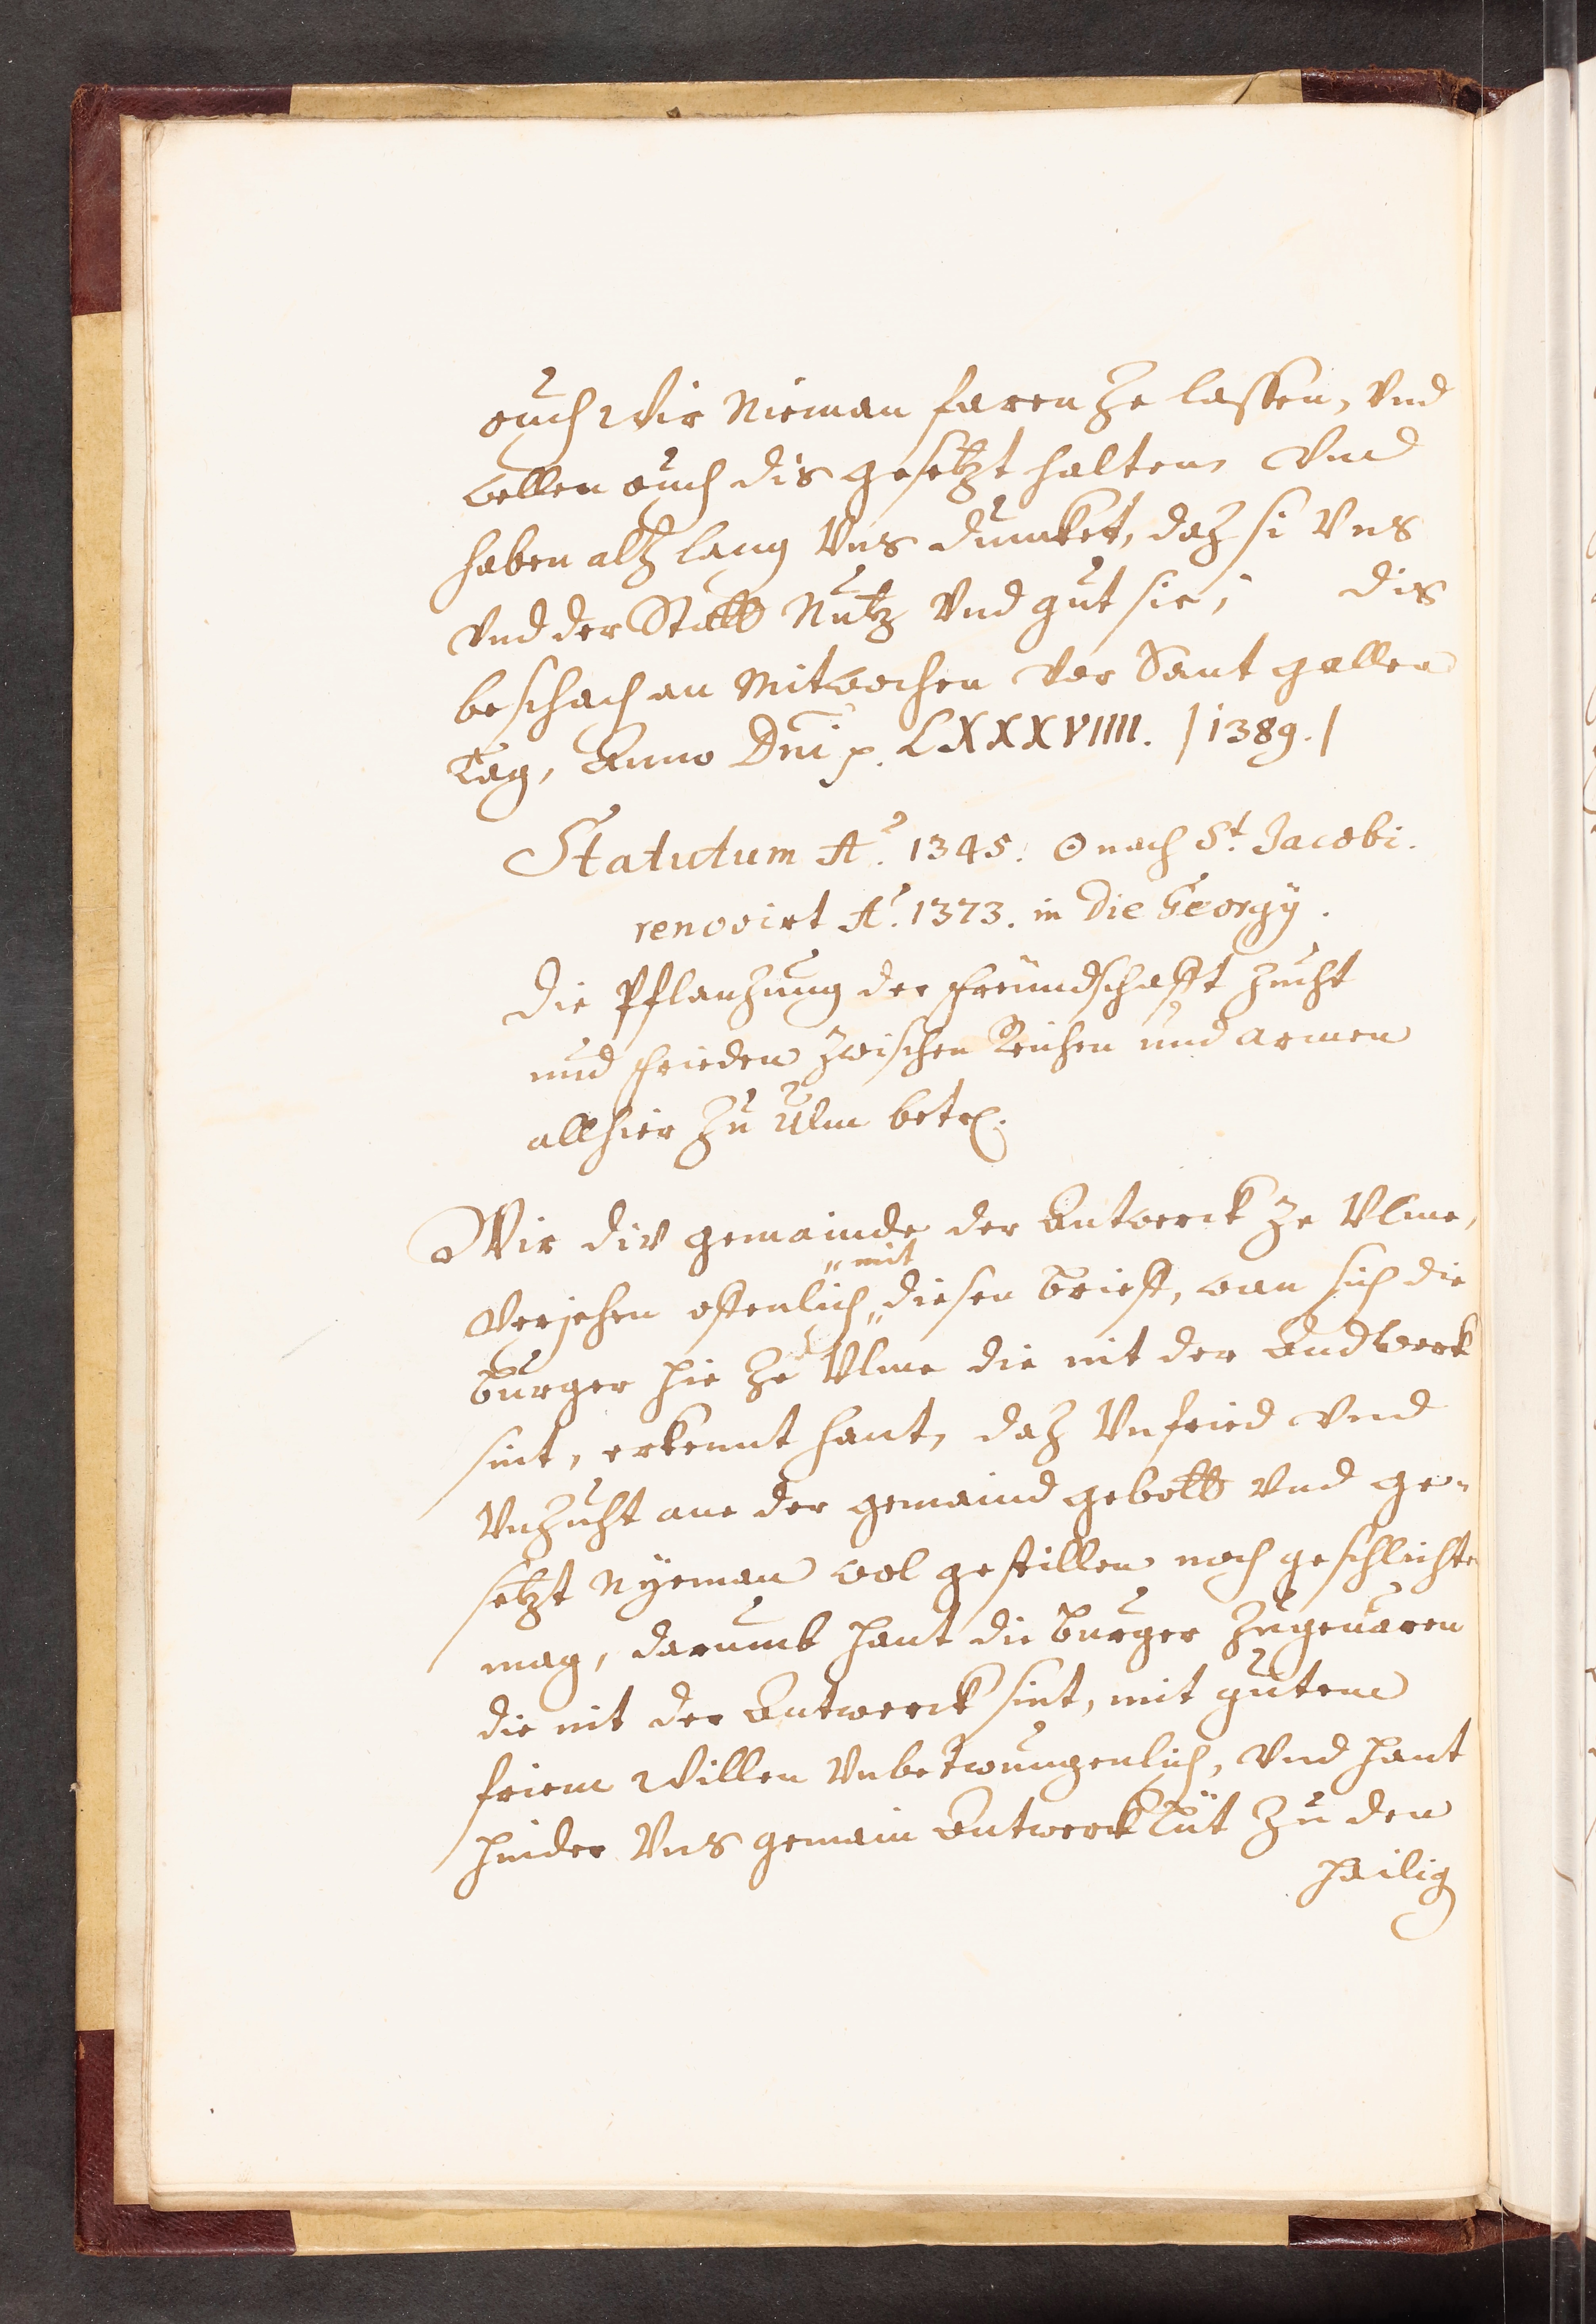 ouch Wir Nieman faren ze lassen, Vnd
wellen ouch dis gesetzt halten Vnd
haben alz lang Vns dunket, daz si Vns
Vnd der Statt Nutz Vnd gut sie; dis
beschach an Mitwochen Vor Sant gallen
Tag, Anno Dni p. LXXXVIIII. /1389./
Statutum Aō. 1345. ☉ nach St. Jacobi.
renovirt Aō. 1373. in Die Georgÿ.
Die Pflanzung der freundschafft Zucht
und frieden zwischen Reichen und armen
allhier zu Ulm betr.
Wir div gemainde der Antwerck ze Vlme,
Verjehen offenlich „mit„ diesen brieff, wan sich die
burger hie ze Vlme die nit der Andwerk
sint, erkennt hant, daz Vnfried Vnd
Vnzucht ane der gemaind gebott Vnd ge-
setzt Nyeman wol gestillen noch geschlichten
mag, darumb hant die burger zugeuaren
die nit der Antwerck sint, mit gutem
friem Willen Vnbetwungenlich, Vnd hant
hinder Vns gemain Antwercklüt zu den
Hailig